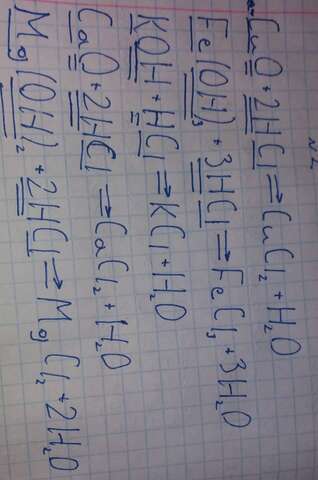 №1
CuO + 2HCl ⇒ CuCl₂ + H₂O
Fe(OH)₃ + 3HCl ⇒ FeCl₃ + 3H₂O
KOH + HCl ⇒ KCl + H₂O
CaO + 2HCl ⇒ CaCl₂ + H₂O
Mg(OH)₂ + 2HCl ⇒ MgCl₂ + 2H₂O